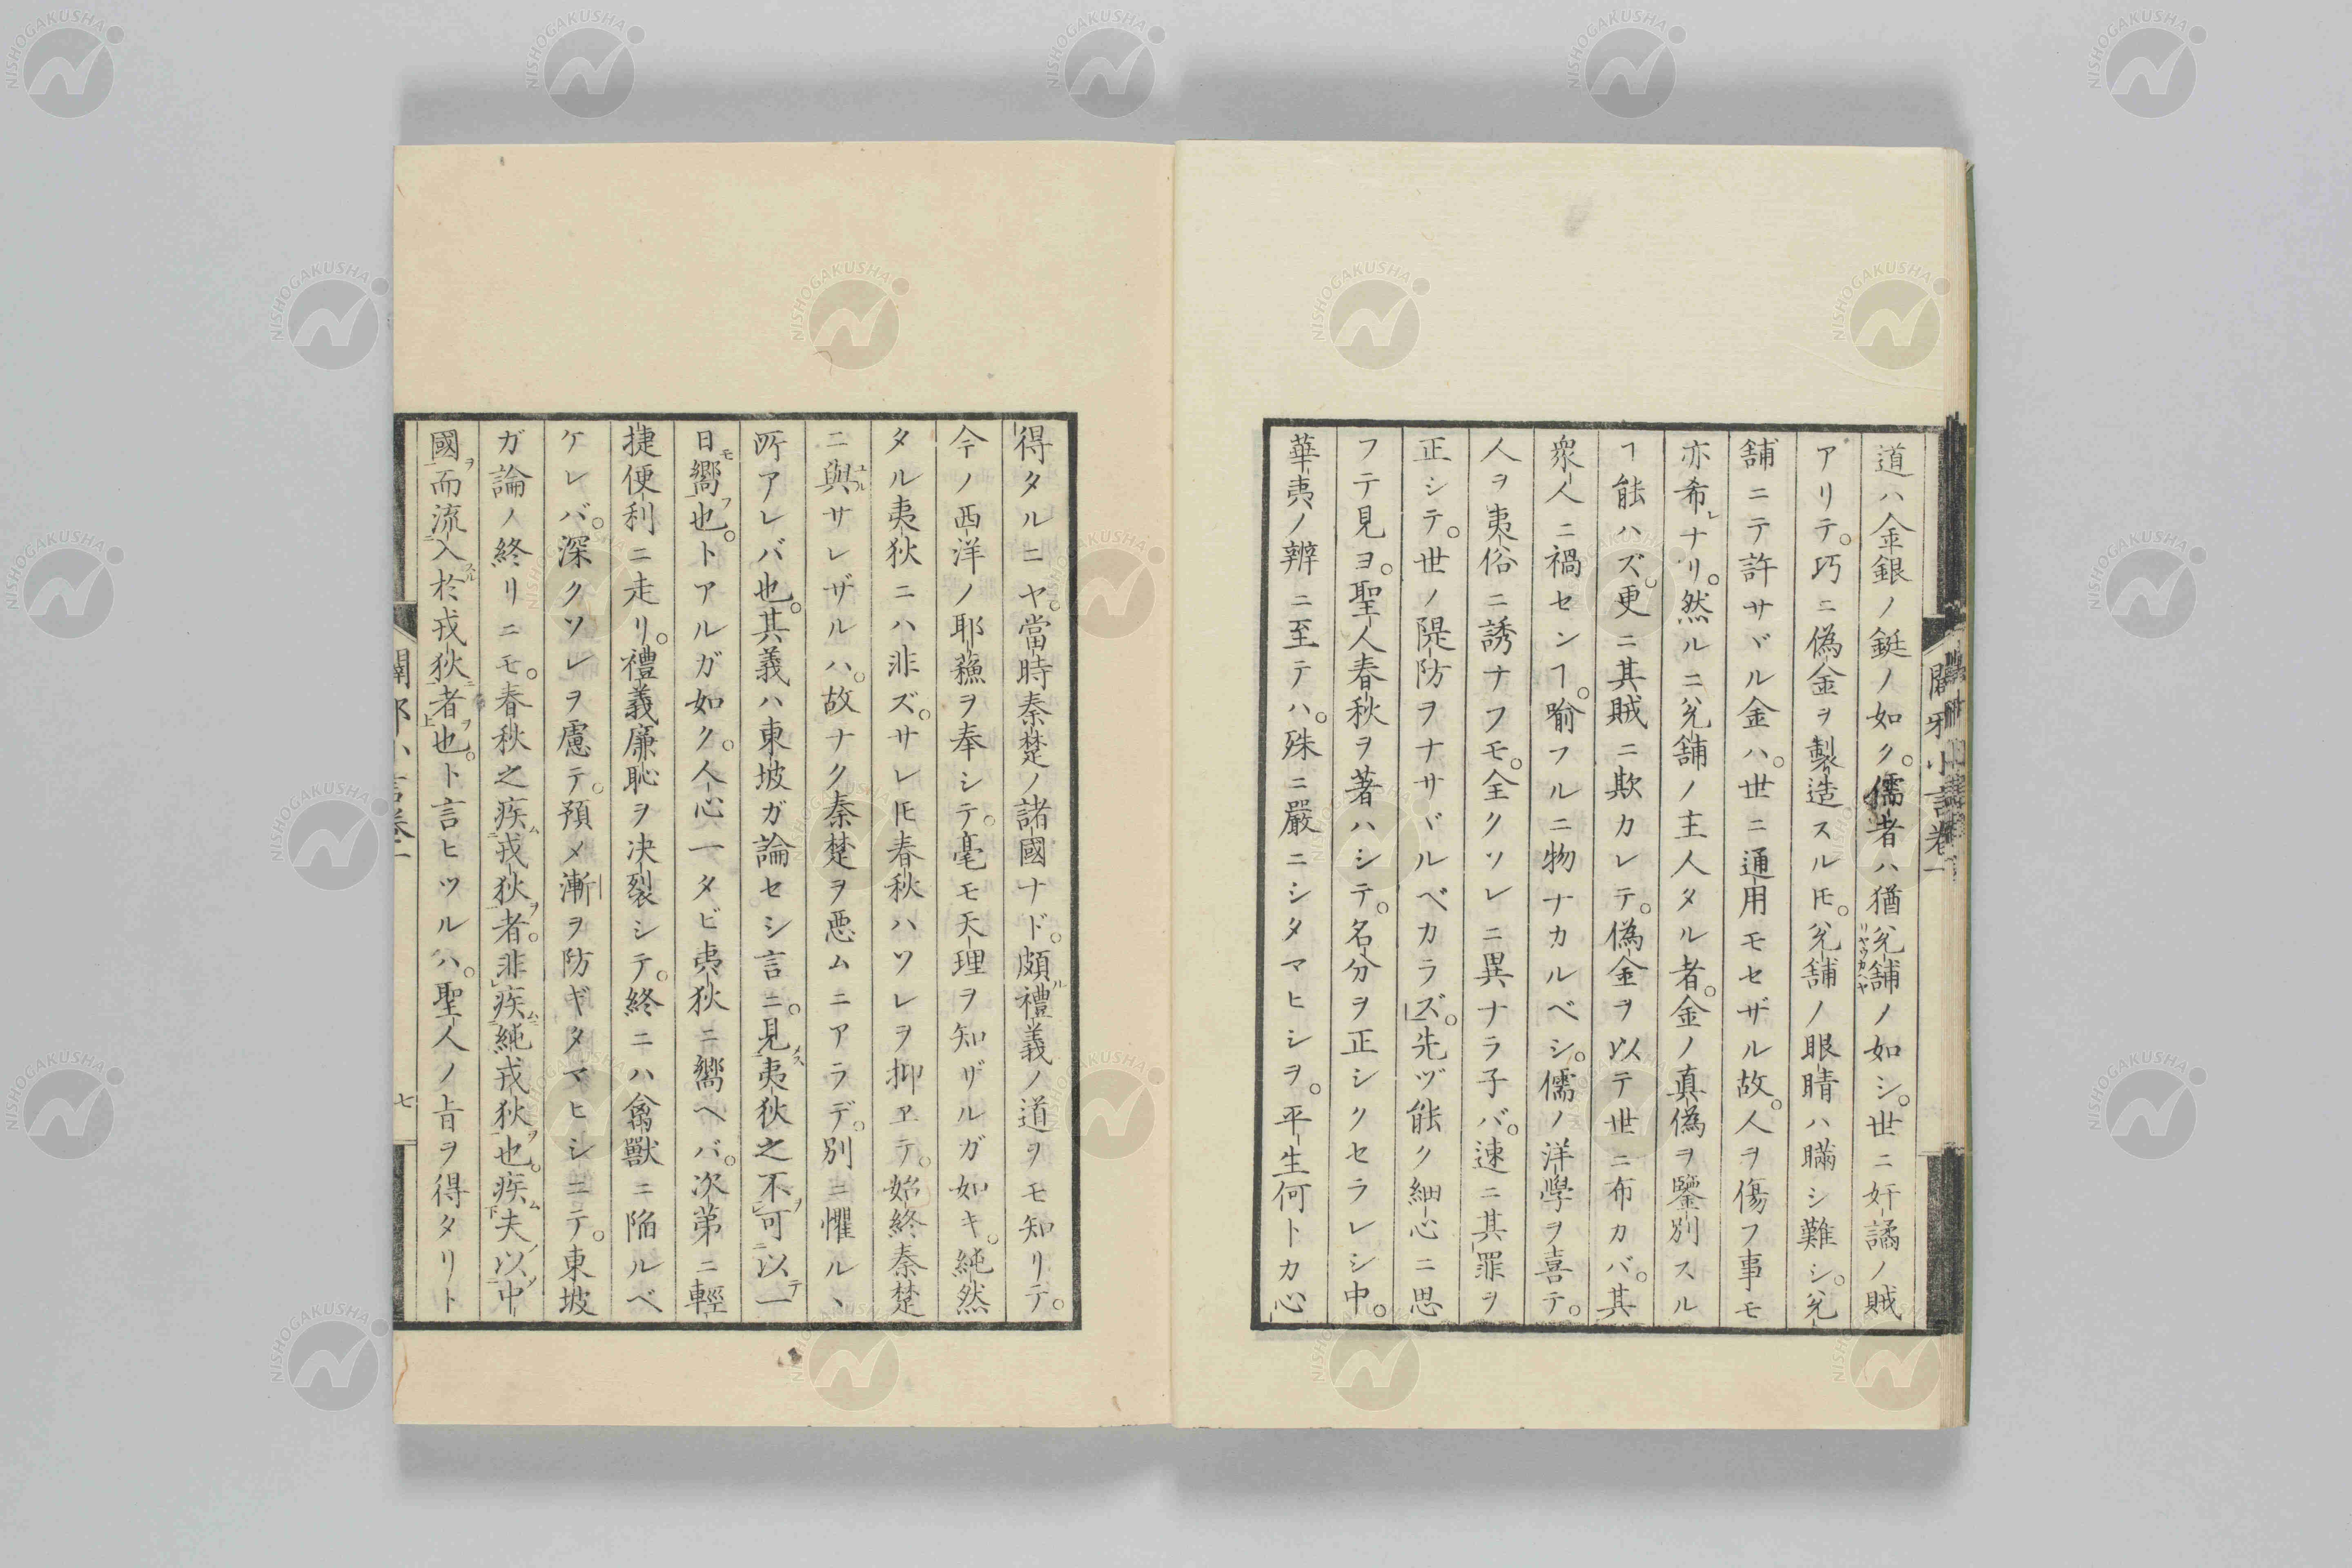 道ハ金銀ノ鋌ノ如ク。儒者ハ猶兊舗ノ如シ。世ニ奸譎ノ賊
リヤウカヘヤ
アリテ。巧ニ偽金ヲ製造スルㇳモ。兊舗ノ眼睛ハ瞞シ難シ。兊
舗ニテ許サヾル金ハ。世ニ通用モセザル故。人ヲ傷フ事モ
亦希レナリ。然ルニ兊舗ノ主人タル者。金ノ真偽ヲ鑒別スル
ヿ能ハズ。更ニ其賊ニ欺カレテ。偽金ヲ以テ世ニ布カバ。其
衆人ニ禍センヿ。喻フルニ物ナカルベシ。儒ノ洋學ヲ喜テ。
人ヲ夷俗ニ誘ナフモ。全クソレニ異ナラ子バ。速ニ其罪ヲ
正シテ。世ノ隄防ヲナサヾルベカラズ。先ヅ能ク細心ニ思
フテ見ヨ。聖人春秋ヲ著ハシテ。名分ヲ正シクセラレシ中。
華夷ノ辨ニ至テハ。殊ニ嚴ニシタマヒシヲ。平生何トカ心
闢邪小言卷一
得タルニヤ。當時秦楚ノ諸國ナド。頗ル禮義ノ道ヲモ知リテ。
今ノ西洋ノ耶蘓ヲ奉シテ。毫モ天理ヲ知ザルガ如キ。純然
タル夷狄ニハ非ズ。サレㇳモ春秋ハソレヲ抑ヱテ。始終秦楚
ニ與ユルサレザルハ。故ナク秦楚ヲ惡ムニアラデ。別ニ懼ルヽ
所アレバ也。其義ハ東坡ガ論セシ言ニ。見夷狄之不可以一
日嚮也。トアルガ如ク。人心一タビ夷狄ニ嚮ヘバ。次第ニ輕
捷便利ニ走リ。禮義廉恥ヲ决裂シテ。終ニハ禽獸ニ陥ルベ
ケレバ。深クソレヲ慮テ。預メ漸ヲ防ギタマヒシニテ。東坡
ガ論ノ終リニモ。春秋之疾戎狄者。非疾純戎狄也。疾夫以中
國而流入於戎狄者也。ト言ヒツルハ。聖人ノ旨ヲ得タリト
七
NISHOGAKUSHA